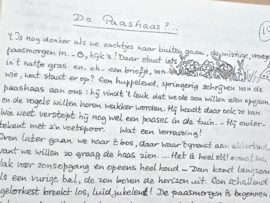 De Paashaas?...
't Is nog donker als we zachtjes naar buiten gaan,
paasmorgen in. - O, kijk's! Daar staat iets
in 't natte gras en, oh - een briefje, van
wie, wat staat er op? Een huppelend, springerig schrijven van de
paashaas aan ons: hij vindt 't leuk dat we de zon willen zien opgaan
en de vogels willen horen wakker worden. Hij houdt daar ook zo van
Wie weet verstopt hij nog wel een paasei in de tuin. - Hij
tekent met z'n voetspoor. Wat een verrassing!
later gaan we naar 't bos, daar waar
want we willen zo graag de haas zien. ... Het is heel stil
vlak voor zonsopgang en opeens heel koud - Dan komt langzaam
als een vurige bal, de zon boven de horizon uit. Een schallend
breekt los, luid jubelend! De paasmorgen is begonnen